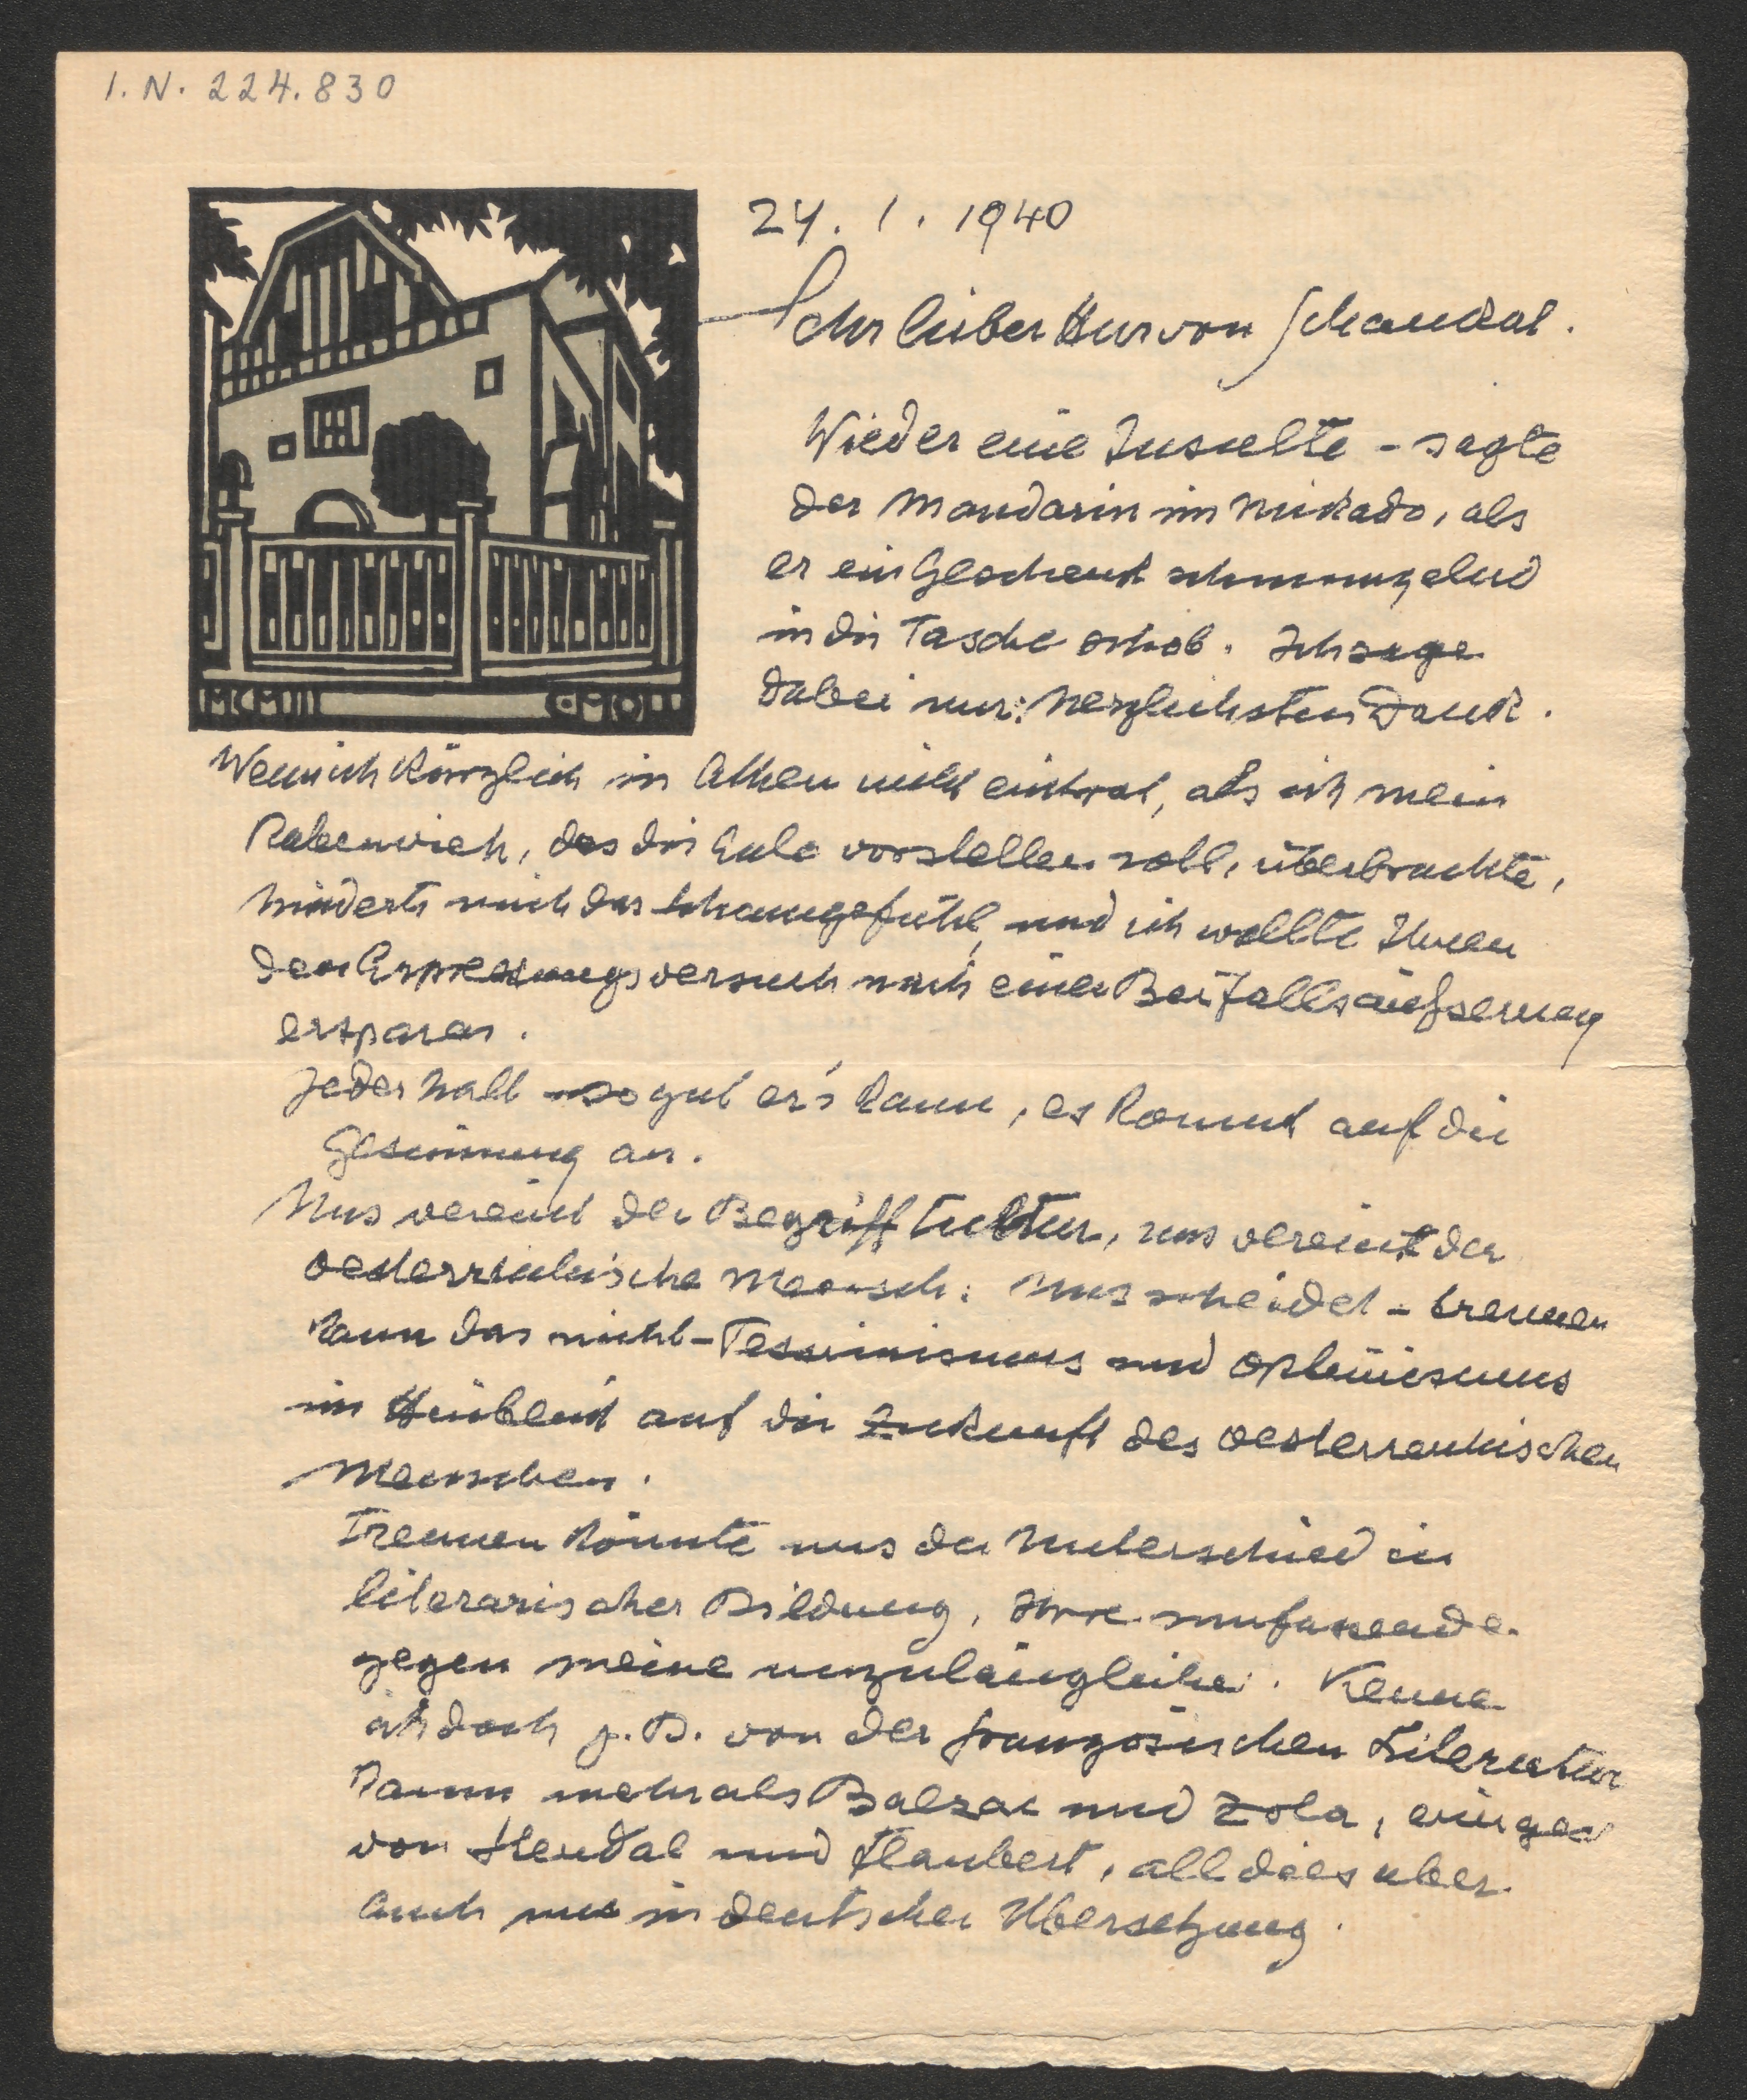 I. N. 224.830
24. I. 1940
Sehr lieber Herr von Schaukal.
Wieder eine Insulte - sagte
der Mandarin im Mikado, als
er ein Geschenk schmunzelnd
in die Tasche schob. Ich sage
dabei nur: herzlichsten Dank.
Wenn ich kürzlich in Athen nicht eintrat, als ich mein
Rabenvieh, das die Eule vorstellen soll, überbrachte,
hinderte mich das Schamgefühl, und ich wollte Ihnen
den Erpressungsversuch nach einer Beifallsäußerung
ersparen.
Jeder halt so gut er's kann, es kommt auf die
Gesinnung an.
Uns vereint der Begriff Kultur, uns vereint der
oesterreichische Mensch. Uns scheidet - trennen
kann das nicht - Pessimismus und Optimismus
im Hinblick auf die Zukunft des oesterreichischen
Menschen.
Trennen könnte uns der Unterschied in
literarischer Bildung, Ihre umfassende
gegen meine unzulängliche. Kenne
ich doch z. B. von der französischen Literatur
kaum mehr als Balzac und Zola, einiges
von Stendal und Flaubert, all dies aber
auch nur in deutscher Übersetzung.
MCMIII